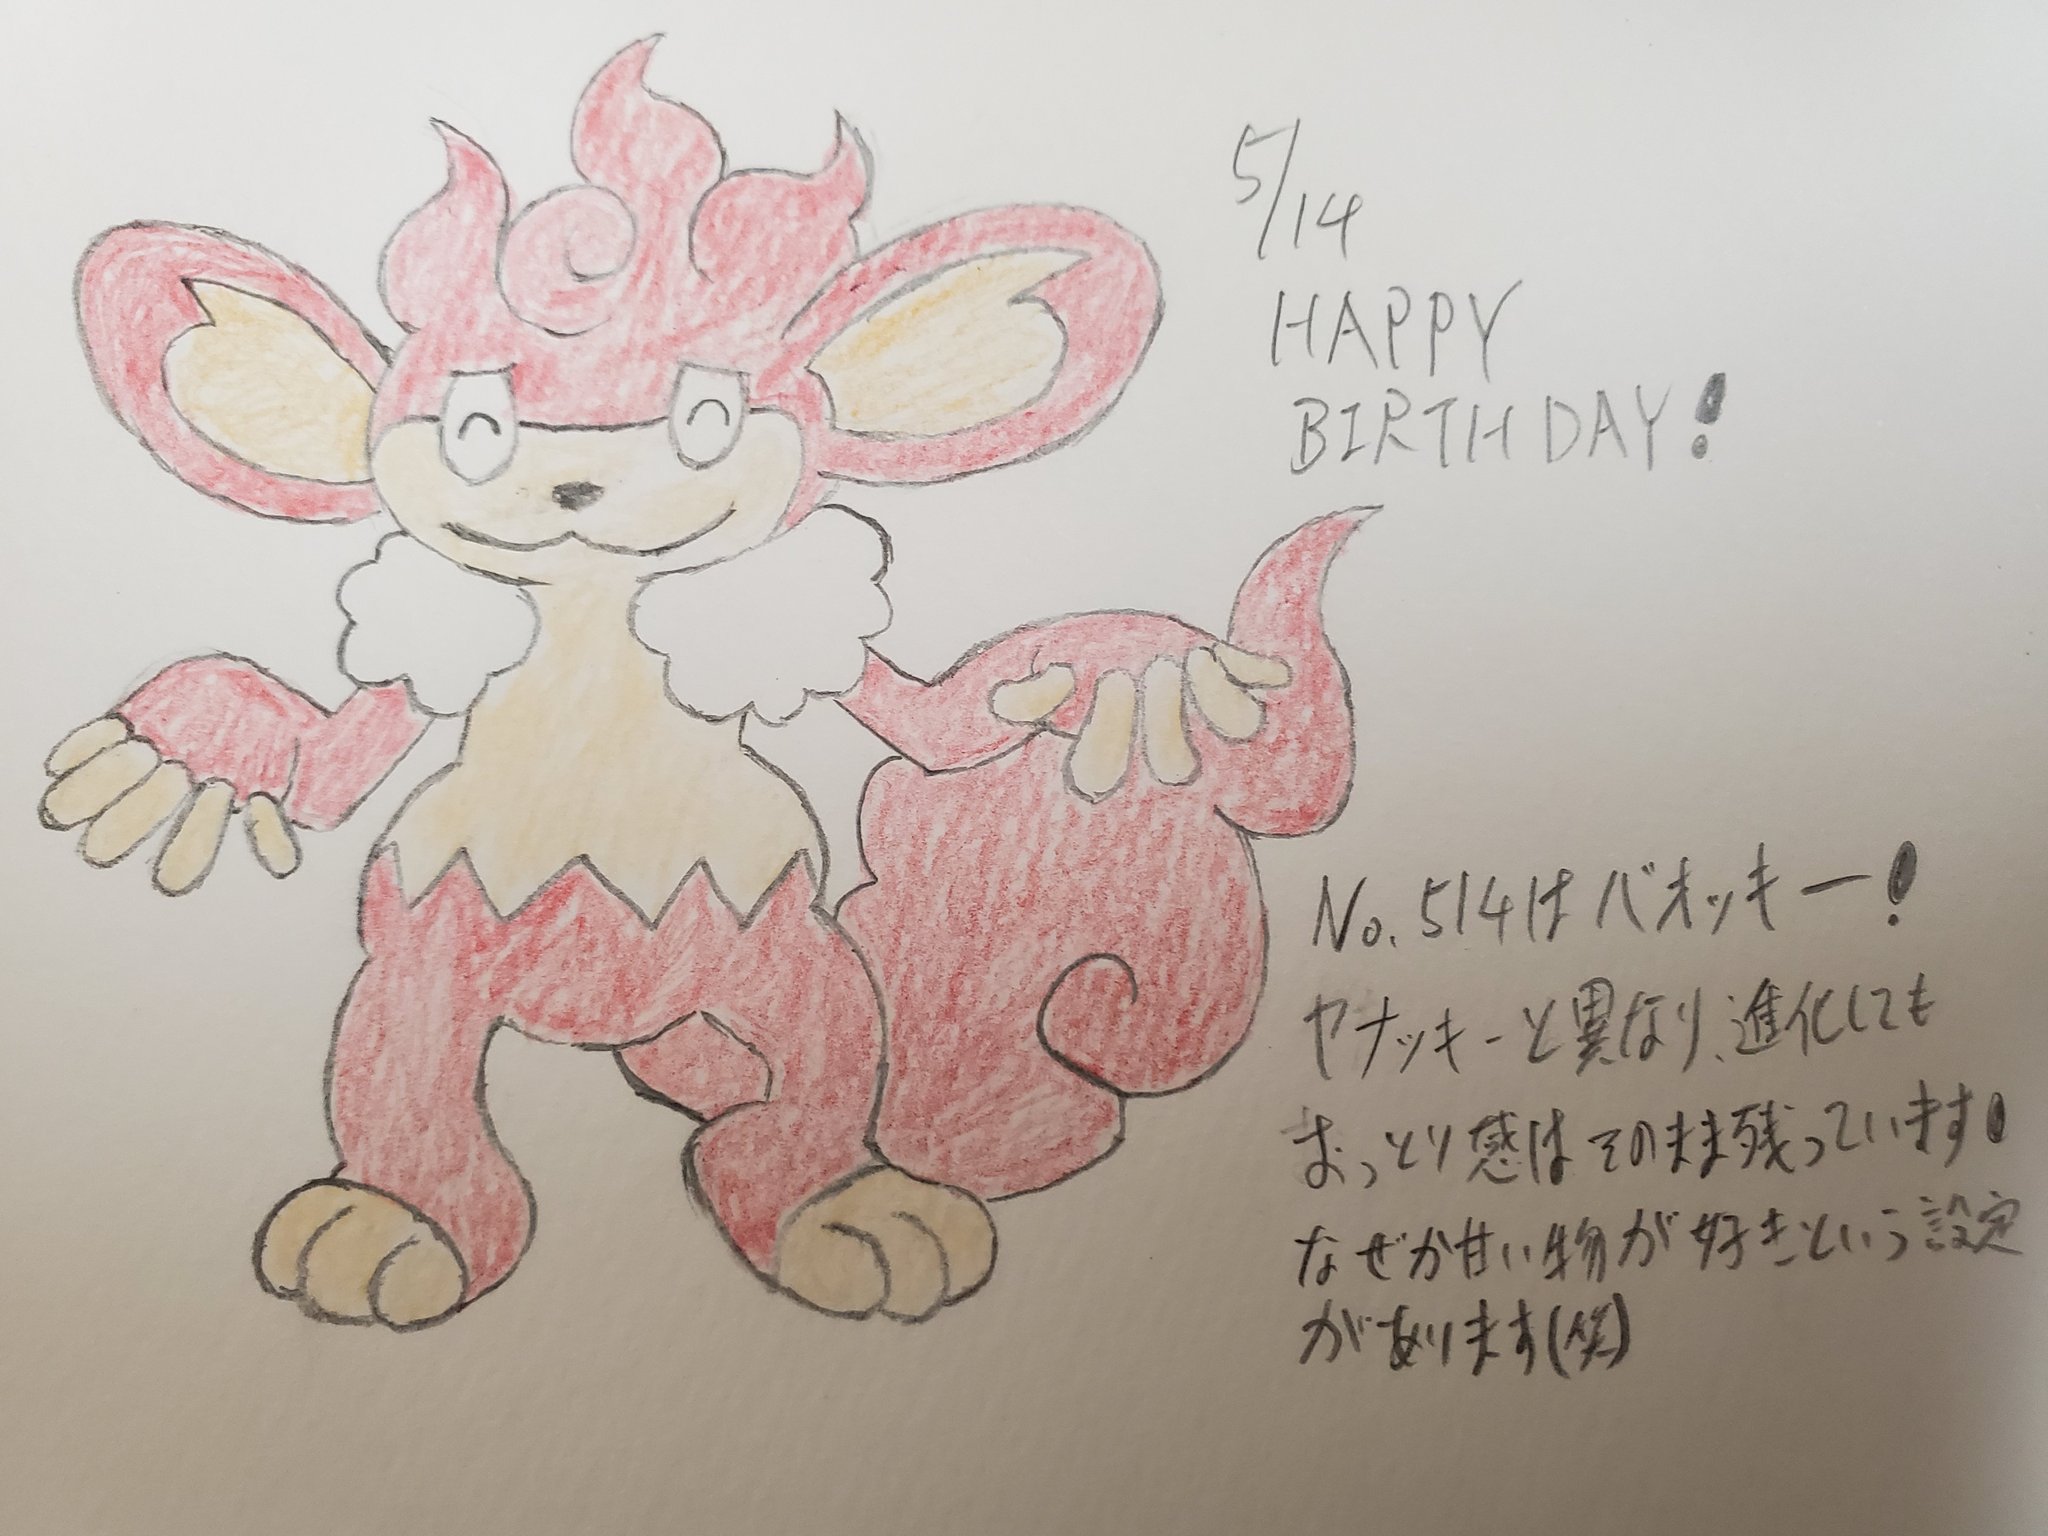 5/14
HAPPY
BIRTHDAY!
No.514はバオッキー!
ヤナッキーと異なり、進化しても
おっとり感はそのまま残っています!
なぜか甘い物が好きという設定
があります(笑)